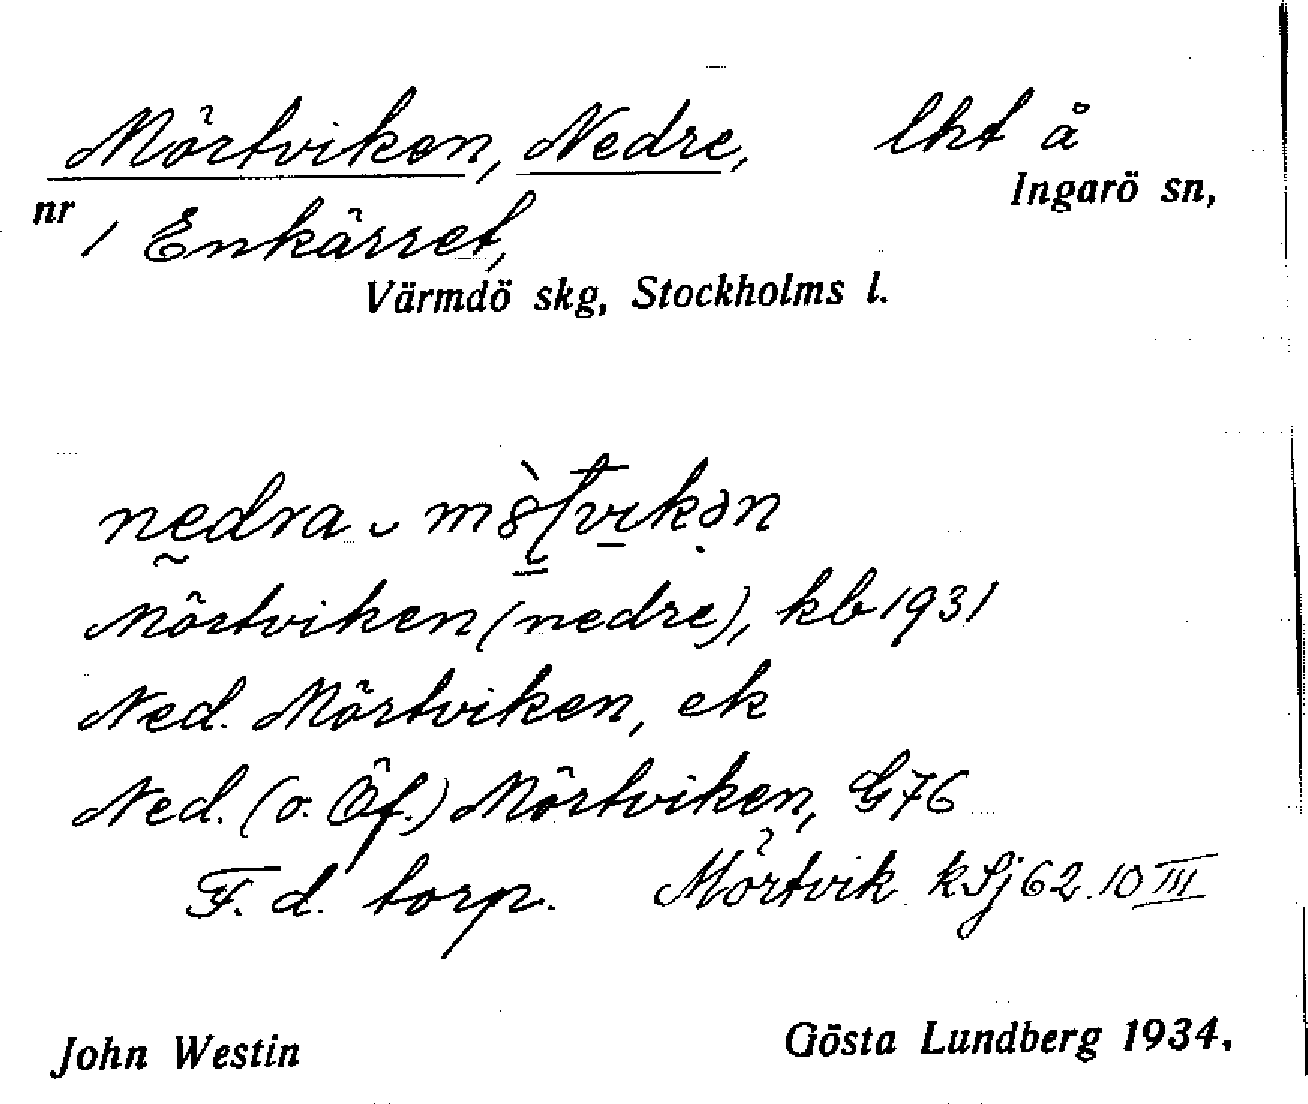 Mörtviken, Nedre, lht å
Ingarö sn,
nr 1 Enkärret,
Värmdö skg, Stockholms l.
nedra
Mörtviken (nedre), kb 1931
Ned. Mörtviken, ek
Ned. (o. Öf.) Mörtviken, G76
F. d. torp. Mörtvik kSj 62.10 III
John Westin Gösta Lundberg 1934.